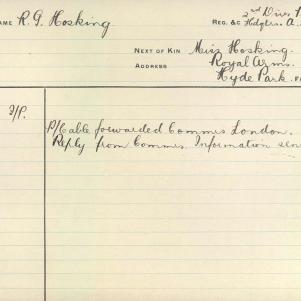 NAME R. G. Hosking
REG. &C 2nd Divs
Hdqtrs. A.
NEXT OF KIN Miss Hosking.
ADDRESS Royal Arms.
Hyde Park.
P/Cable forwarded Commes London.
Reply from Commes. Information